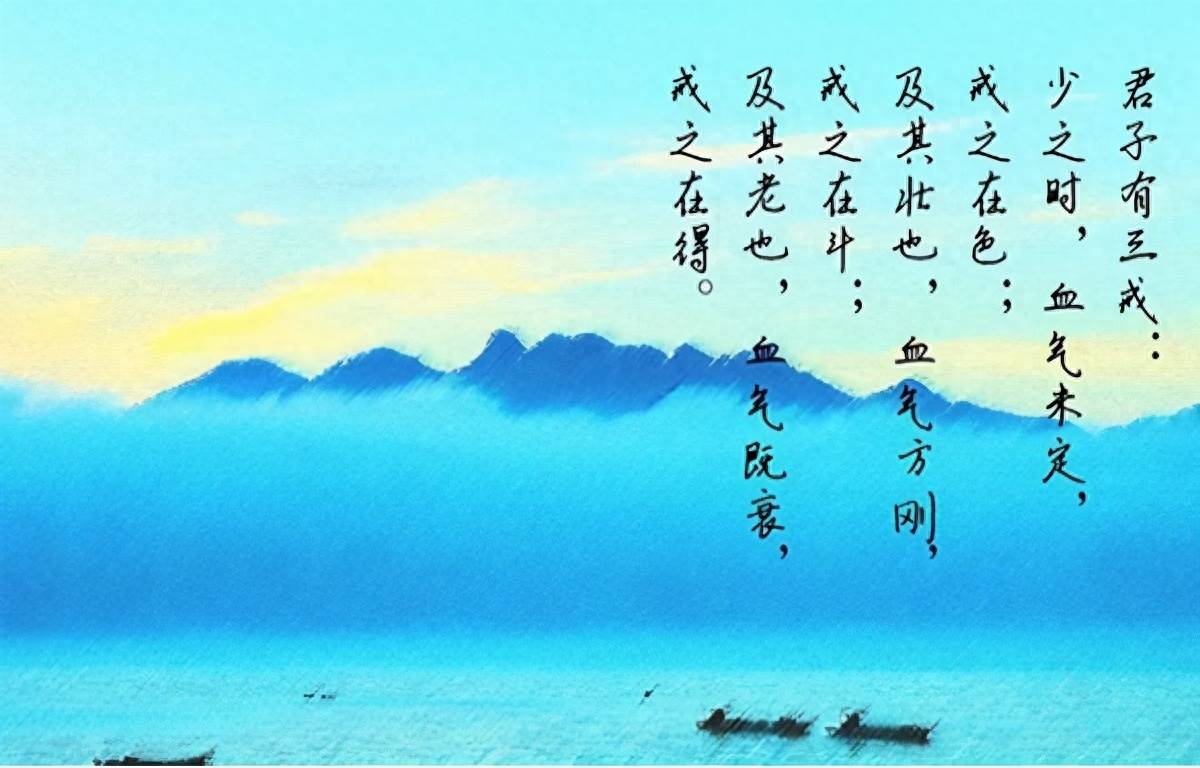 君子有三戒：
少之时，血气未定，
戒之在色；
及其壮也，血气方刚，
戒之在斗；
及其老也，血气既衰，
戒之在得。